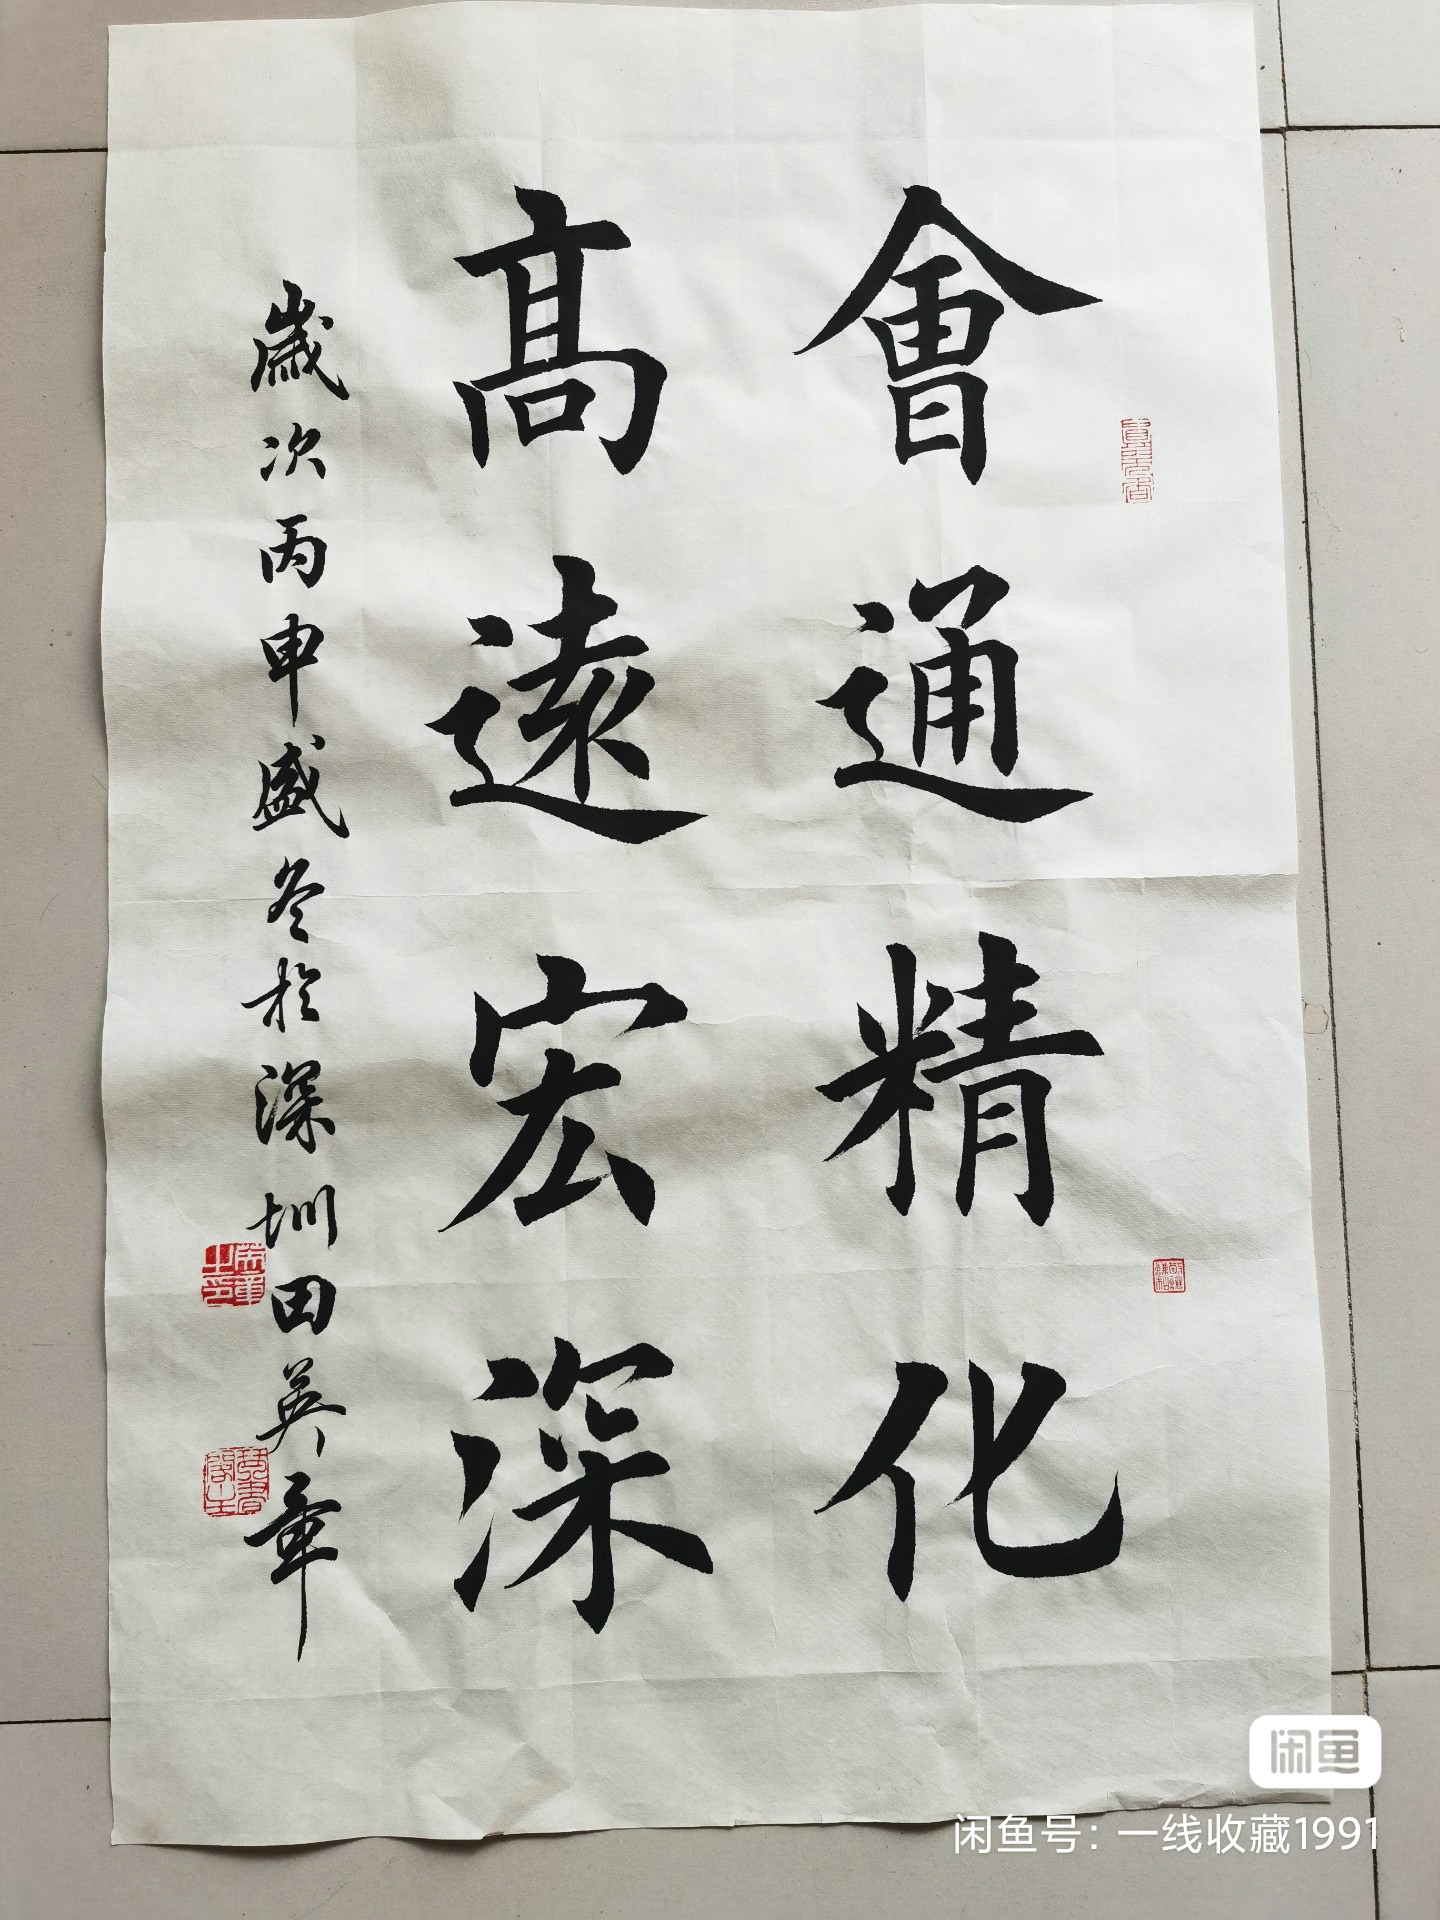 會通精化
高遠宏深
歲次丙申盛冬於深圳田英章
闲鱼
闲鱼号：一线收藏1991